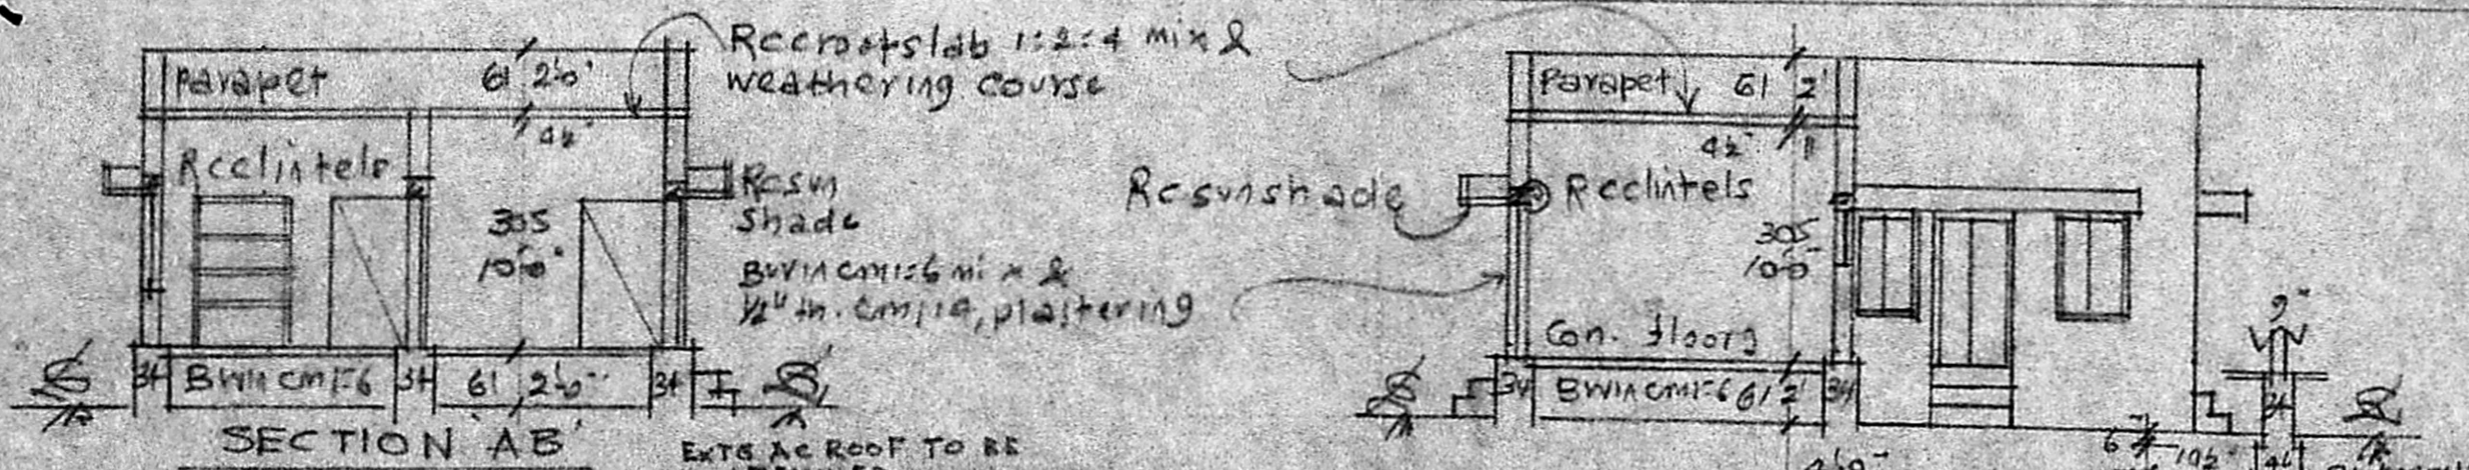 Parapet
61 2'-0"
4½"
Rcc roof slab 1:2:4 mix &
weathering course
Rcc lintels
305
10'-0"
Rc sun
shade
BW in cm 1:6 mix &
½" th. cm 1:4, plastering
34 BW in cm 1:6 34 61 2'-0" 34
SECTION 'AB'
EXTG AC ROOF TO BE
Parapet 61 2'
4½" 11
Rc sunshade
Rcc lintels
305
10'-0"
Con. floors
34 BW in cm 1:6 61 2' 34
9"
34
6